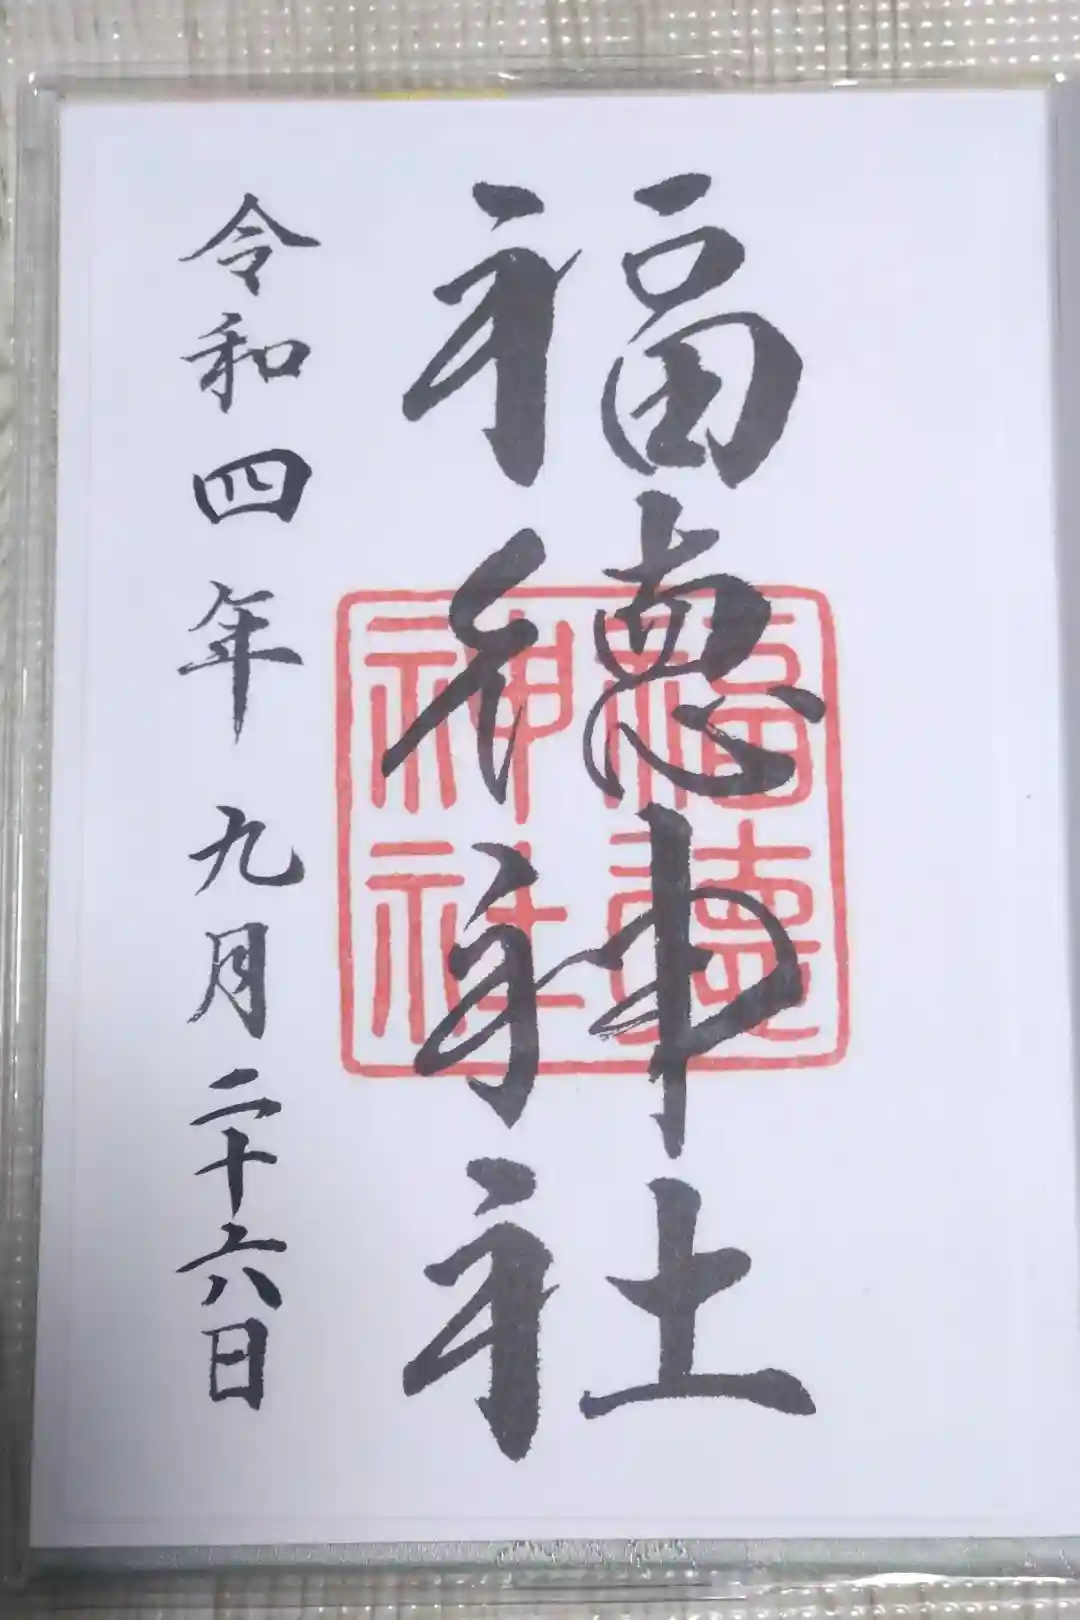 福德神社
令和四年九月二十六日
福德
神社